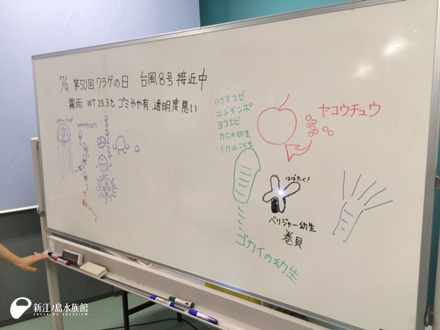 7/9 第50回 クラゲの日 台風8号 接近中
霧雨 WT 23.3℃ ゴミやや有 透明度悪い
・ハナオコゼ
・ニジギンポ
・ヨコエビ
・カニの幼生
・イカのこども
ヤコウチュウ
はばたく!
ベリジャー幼生
巻貝
ゴカイの幼生
新江ノ島水族館
ENOSHIMA AQUARIUM